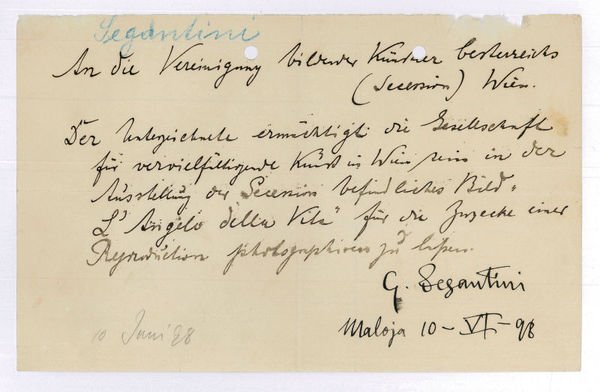 Segantini
An die Vereinigung bildender Künstler Oesterreichs
(Secession) Wien.
Der Unterzeichnete ermächtigt die Gesellschaft
für vervielfältigende Kunst in Wien sein in der
Ausstellung der Secession befindliches Bild "
L'Angelo della Vita" für die Zwecke einer
Reproduction photographiren zu lassen.
G. Segantini
Maloja 10-VI-98
10 Juni 98